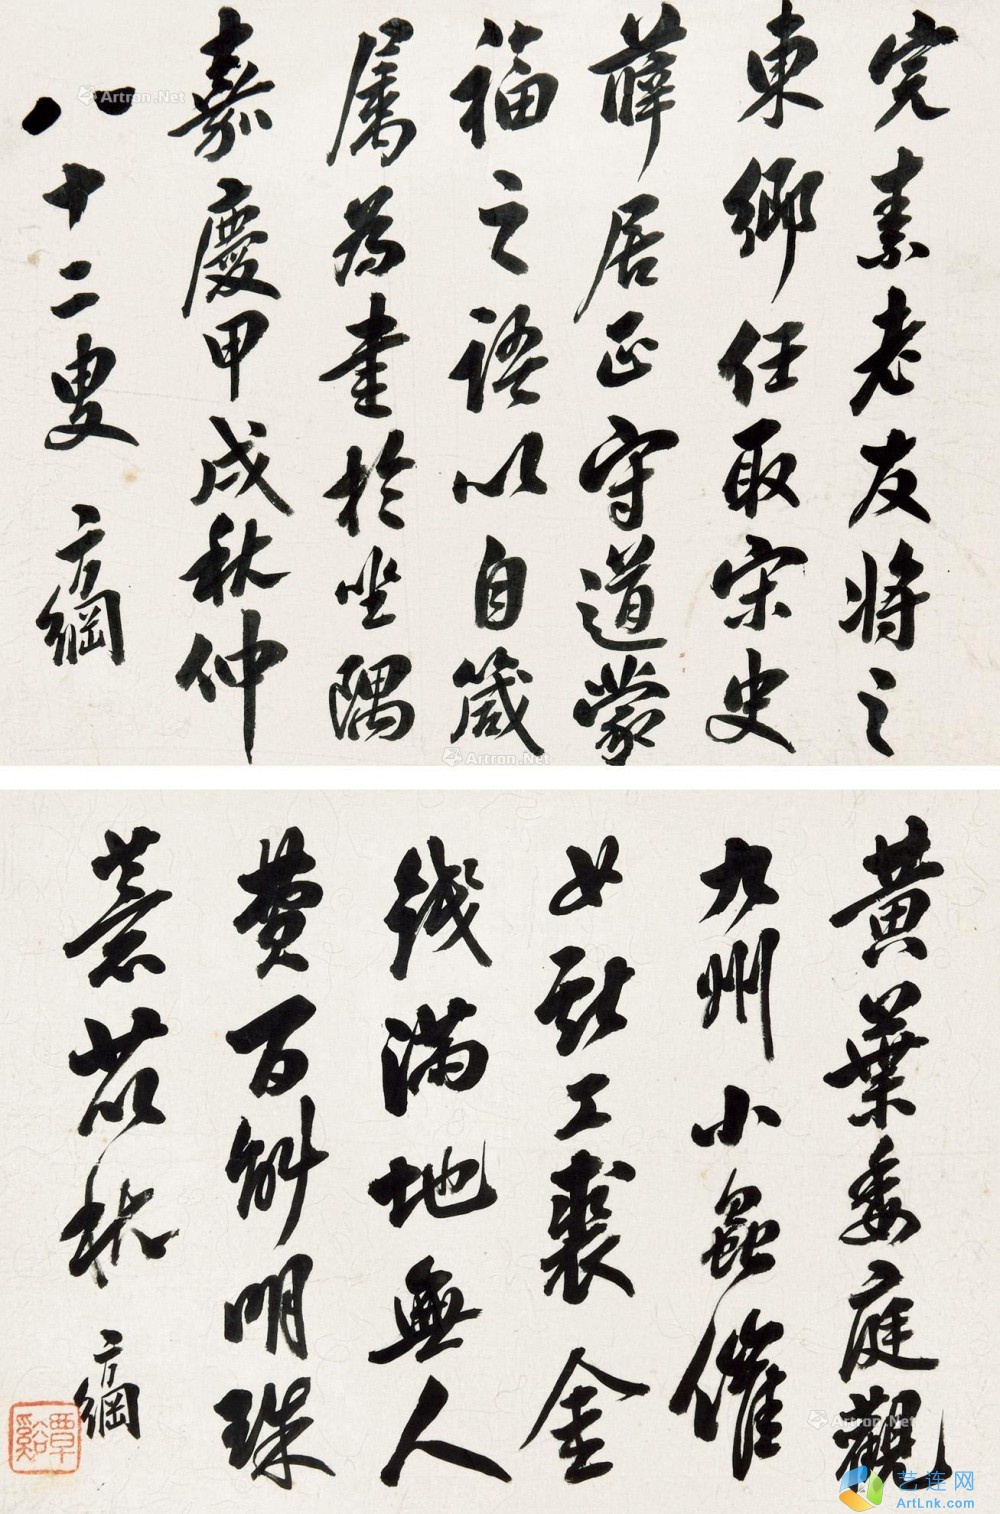 完素老友將之
東鄉任取宋史
薛居正守道蒙
福之語以自箴
属為書於坐隅
嘉慶甲戌秋仲
八十二叟 方綱
黃葉委庭觀
九州小蟲催
女獻工裘金
錢滿地無人
費百斛明珠
薏苡秋 方綱
覃谿
Artron.Net
Artron.Net
Artron.Net
艺连网
ArtLnk.com